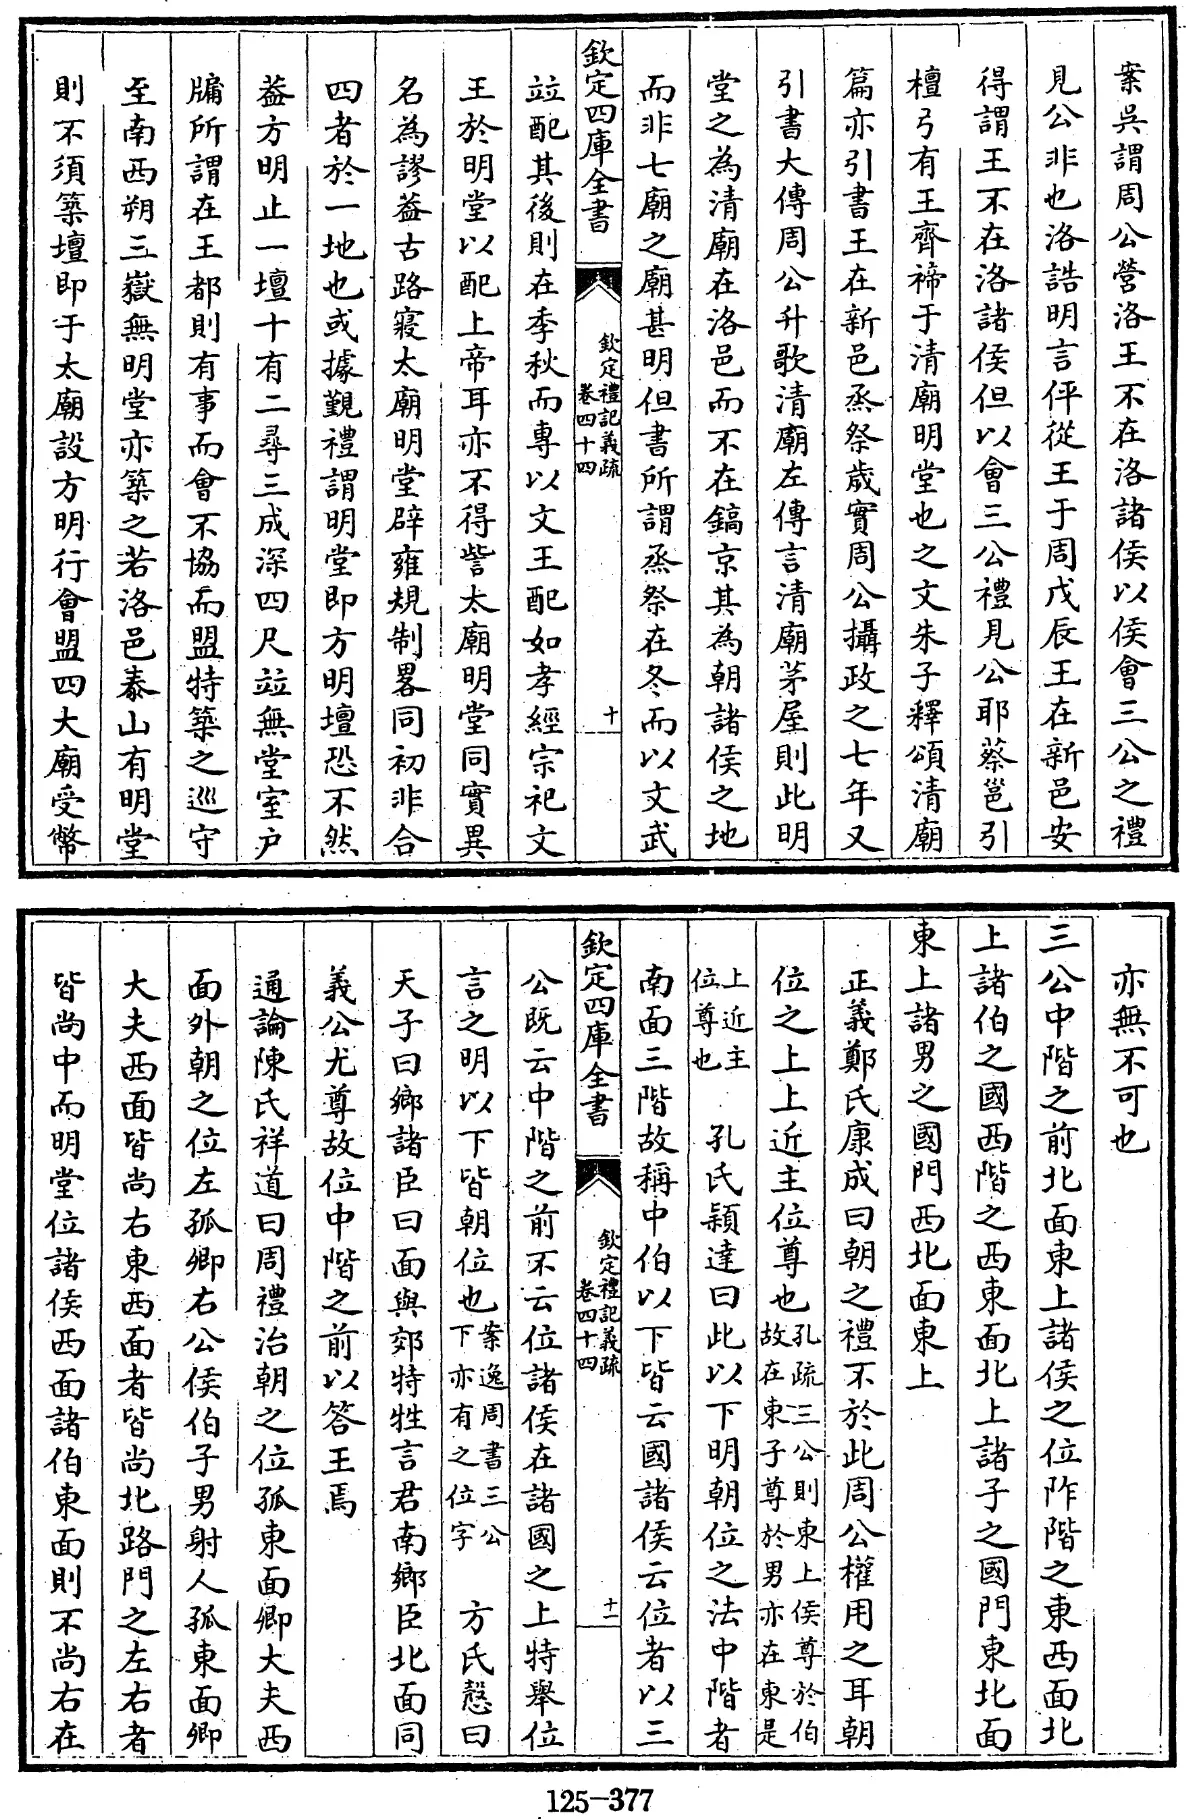 案吳謂周公營洛王不在洛諸侯以侯會三公之禮
見公非也洛誥明言伻從王于周戊辰王在新邑安
得謂王不在洛諸侯但以會三公禮見公耶蔡邕引
檀弓有王齊禘于清廟明堂也之文朱子釋頌清廟
篇亦引書王在新邑烝祭歲實周公攝政之七年又
引書大傳周公升歌清廟左傳言清廟茅屋則此明
堂之為清廟在洛邑而不在鎬京其為朝諸侯之地
而非七廟之廟甚明但書所謂烝祭在冬而以文武
欽定四庫全書
欽定禮記義疏
卷四十四
十
竝配其後則在季秋而專以文王配如孝經宗祀文
王於明堂以配上帝耳亦不得訾太廟明堂同實異
名為謬葢古路寢太廟明堂辟雍規制畧同初非合
四者於一地也或據覲禮謂明堂即方明壇恐不然
葢方明止一壇十有二尋三成深四尺竝無堂室户
牖所謂在王都則有事而會不協而盟特築之巡守
至南西朔三嶽無明堂亦築之若洛邑泰山有明堂
則不須築壇即于太廟設方明行會盟四大廟受幣
亦無不可也
三公中階之前北面東上諸侯之位阼階之東西面北
上諸伯之國西階之西東面北上諸子之國門東北面
東上諸男之國門西北面東上
正義鄭氏康成曰朝之禮不於此周公權用之耳朝
位之上上近主位尊也孔疏三公則東上侯尊於伯
故在東子尊於男亦在東是
上近主
位尊也
孔氏穎達曰此以下明朝位之法中階者
南面三階故稱中伯以下皆云國諸侯云位者以三
欽定四庫全書
欽定禮記義疏
卷四十四
十一
公既云中階之前不云位諸侯在諸國之上特舉位
言之明以下皆朝位也案逸周書三公
下亦有之位字
方氏慤曰
天子曰鄉諸臣曰面與郊特牲言君南鄉臣北面同
義公尤尊故位中階之前以答王焉
通論陳氏祥道曰周禮治朝之位孤東面卿大夫西
面外朝之位左孤卿右公侯伯子男射人孤東面卿
大夫西面皆尚右東西面者皆尚北路門之左右者
皆尚中而明堂位諸侯西面諸伯東面則不尚右在
125-377